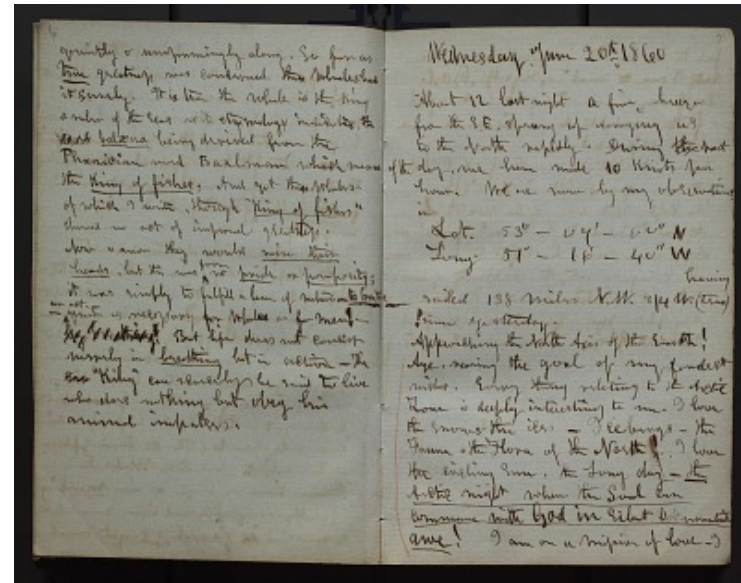 quietly & unassumingly along. So far as
true greatness was concerned these Whales had
it surely. It is true the whale is the King
& ruler of the Seas
being derived from the
Phoenician which means
the King of fishes. And yet these whales
of which I write, though "King of fishes"
showed no act of imperial greatness.
Now & anon they would raise their
heads, but this was from no pride or pomposity;
it was simply to fulfill a law of nature to breathe
an act
as necessary for whales as for men
But life does not consist
merely in breathing but in action — the
"King" can scarcely be said to live
who does nothing but obey his
animal
Wednesday June 20th 1860
About 12 last night a fine breeze
from the S.E. sprung up carrying us
to the North rapidly. During the part
of the day, we have made 10 Knots per
hour. We are now by my observations
in
Lat. 53° – 09' – 00" N
Long. 51° – 16' – 40" W
having
sailed 138 miles N.W. 3/4 W. (true)
since yesterday.
Approaching the North Axis of the Earth!
Aye, nearing the goal of my fondest
wishes. Every thing relating to the Arctic
Zone is deeply interesting to me. I love
the Snows – the ices – Icebergs – the
Fauna & the Flora of the North! I love
the circling Sun, the long day – the
Arctic night when the Soul can
commune with God in silent & reverential
awe! I am on a mission of love – I